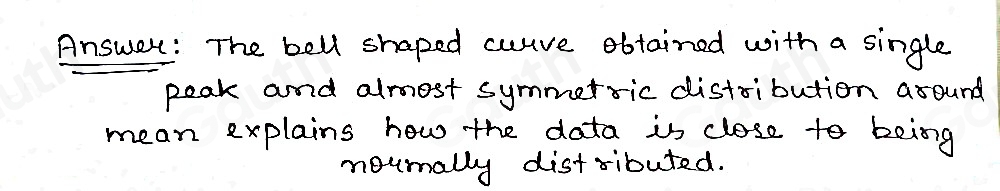 Answer: The bell shaped curve obtained with a single
peak and almost symmetric distribution around
mean explains how the data is close to being
normally distributed.